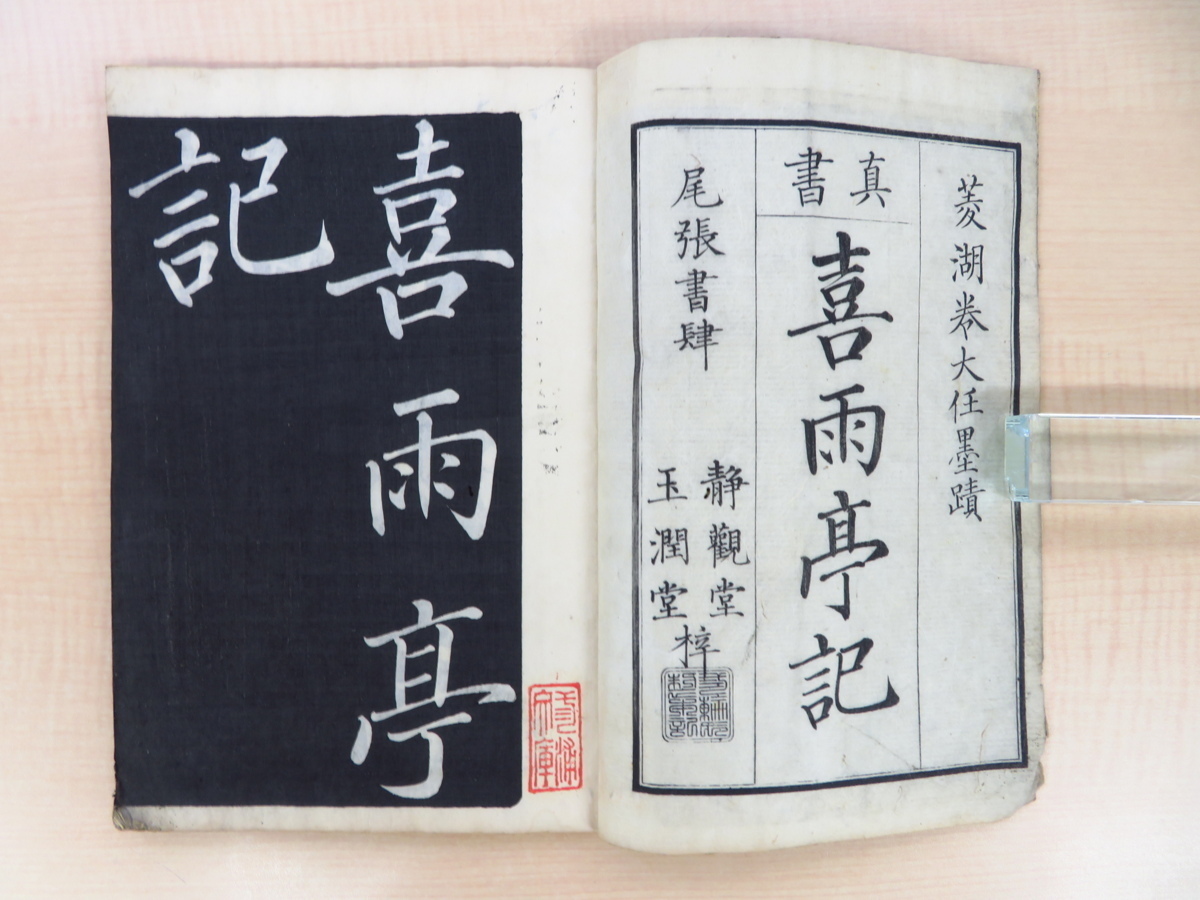 菱湖巻大任墨蹟
真書
喜雨亭記
尾張書肆
靜觀堂
玉潤堂
梓
喜雨亭
記